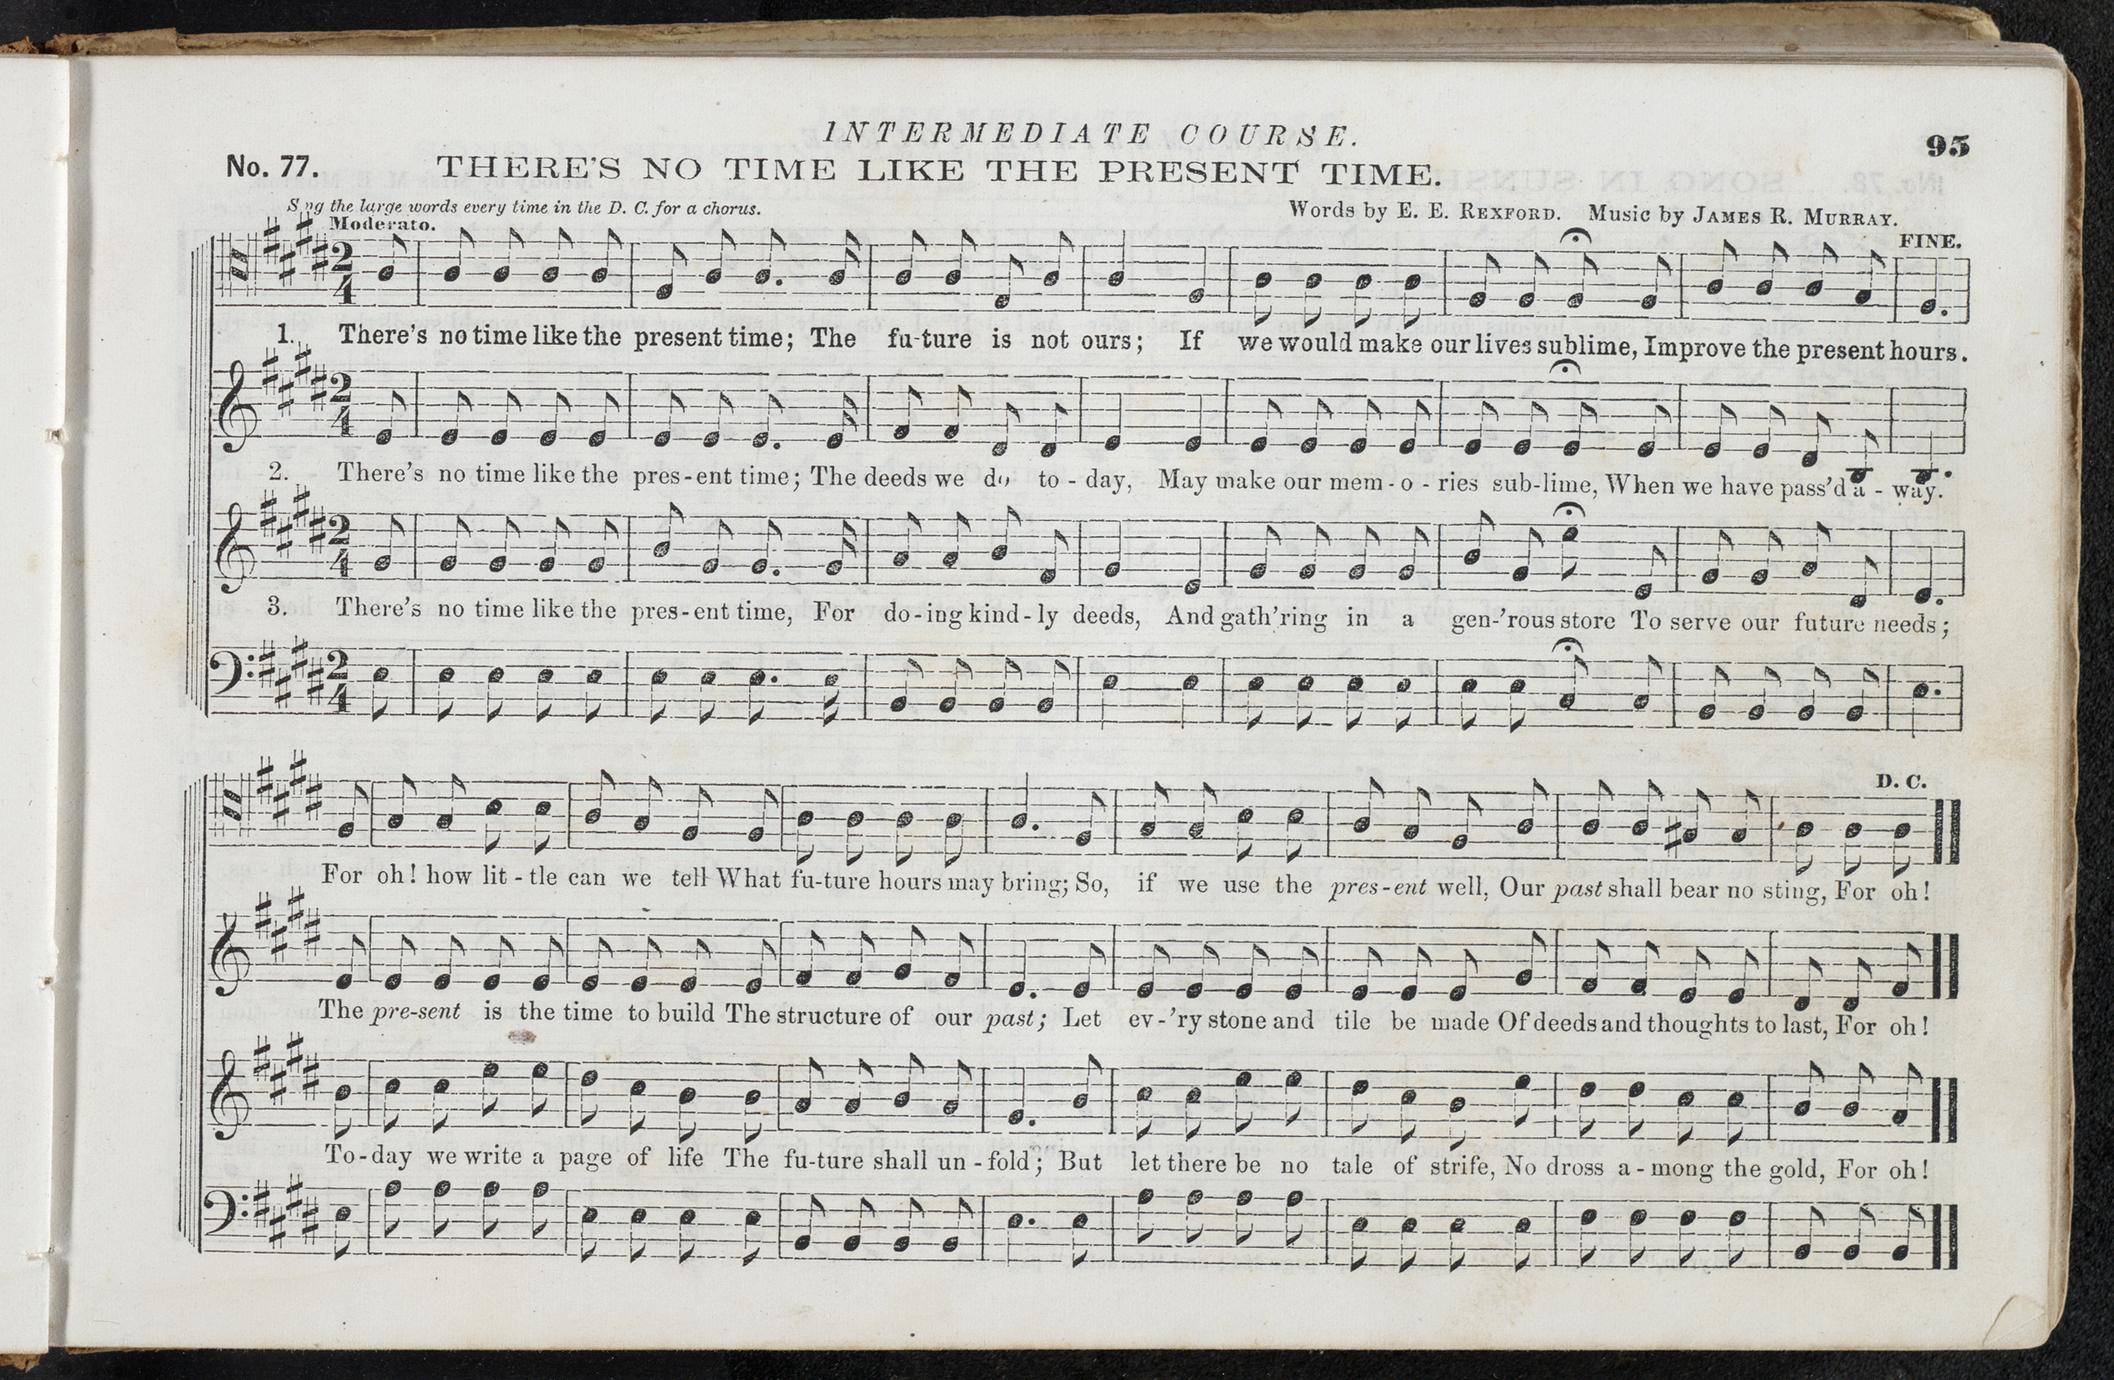 INTERMEDIATE COURSE.
95
No. 77. THERE'S NO TIME LIKE THE PRESENT TIME.
Sing the large words every time in the D. C. for a chorus.
Words by E. E. REXFORD. Music by JAMES R. MURRAY.
Moderato.
FINE.
1. There's no time like the present time; The fu-ture is not ours; If we would make our lives sublime, Improve the present hours.
2. There's no time like the pres-ent time; The deeds we do to-day, May make our mem-o-ries sub-lime, When we have pass'd a-way.
3. There's no time like the pres-ent time, For do-ing kind-ly deeds, And gath'ring in a gen-'rous store To serve our future needs;
D. C.
For oh! how lit-tle can we tell What fu-ture hours may bring; So, if we use the pres-ent well, Our past shall bear no sting, For oh!
The pre-sent is the time to build The structure of our past; Let ev-'ry stone and tile be made Of deeds and thoughts to last, For oh!
To-day we write a page of life The fu-ture shall un-fold; But let there be no tale of strife, No dross a-mong the gold, For oh!